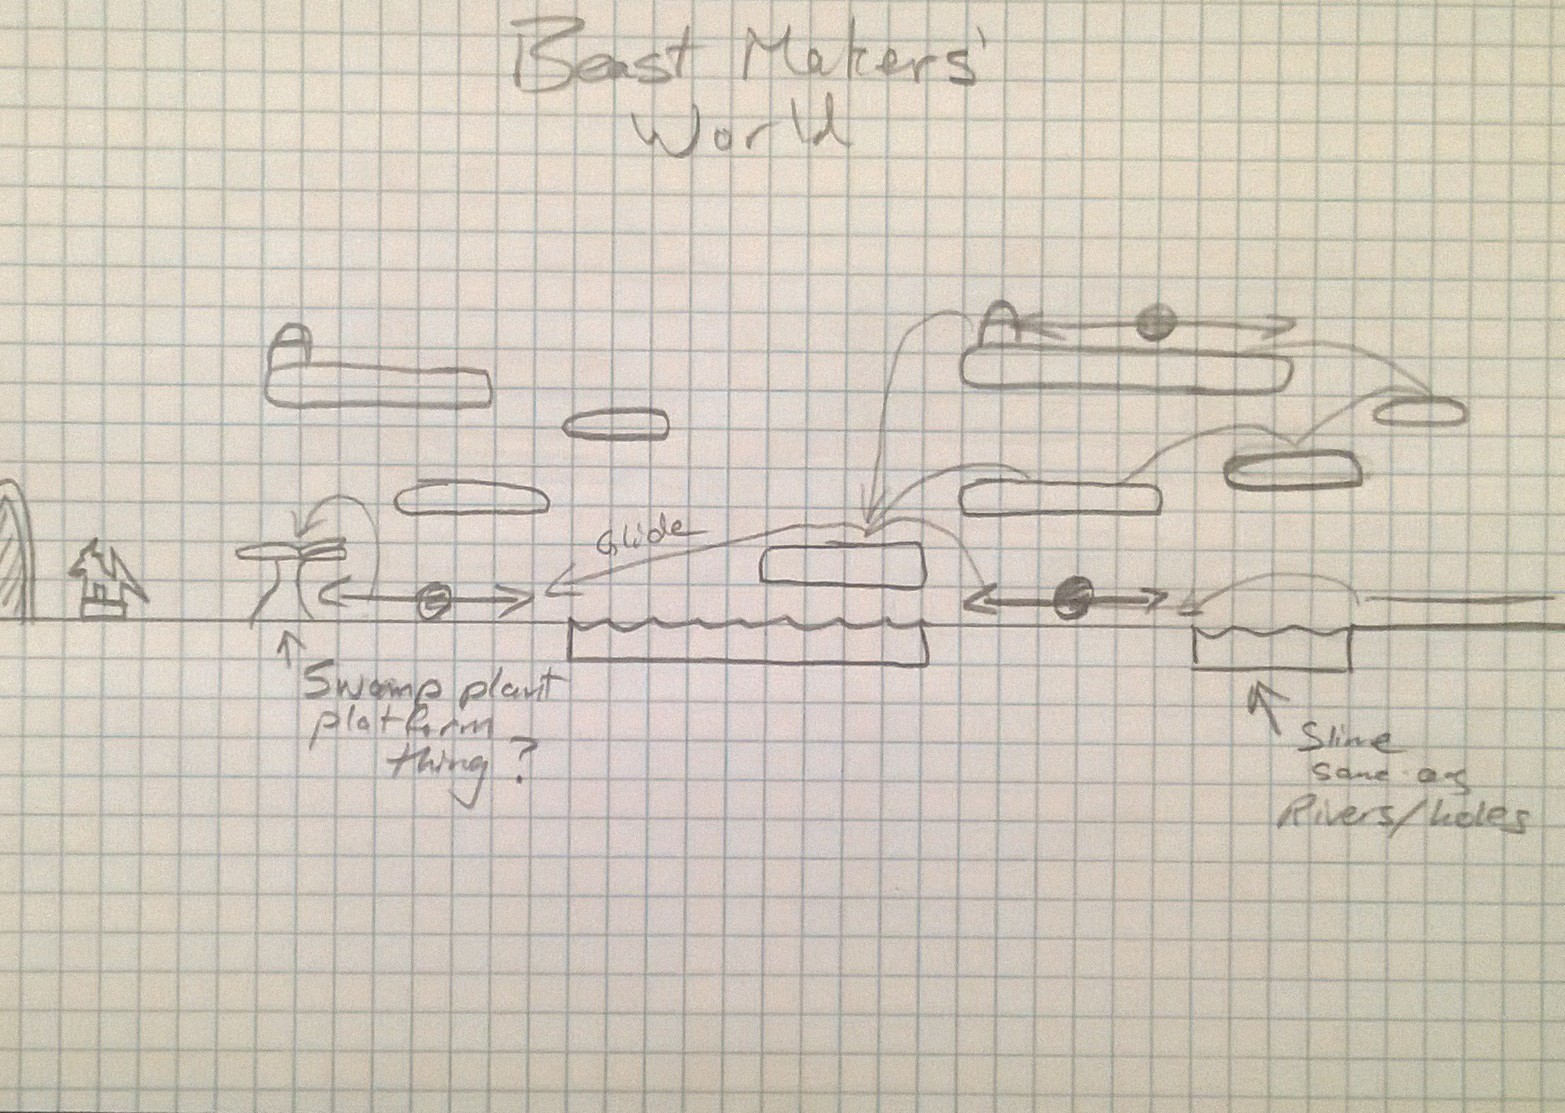 Beast Makers'
World
Glide
Swamp plant
platform
thing?
Slime
same as
Rivers/holes